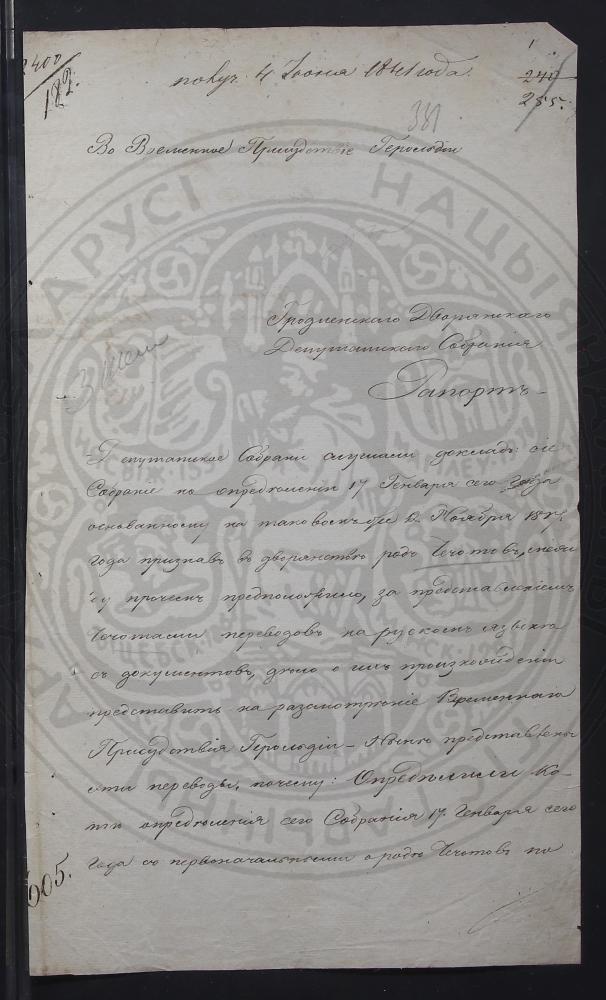 2400
182.
получ. 4 Іюня 1841 года.
1
240
255.
381
Во Временное Присудствіе Герольдіи
Гродненскаго Дворянскаго
Депутатскаго Собранія
Рапортъ
Депутатское Собраніе слушали докладъ: сіе
Собраніе по опредѣленіи 17 Генваря сего года
основанному на таковомъ же 2. Ноября
года признавъ въ дворянствѣ родъ Чечотовъ,
прочемъ предположило, за представленіемъ
Чечотами переводовъ на рускомъ языкѣ
съ документовъ, дѣло о ихъ произхожденіи
представить на разсмотрѣніе Временнаго
Присудствія Герольдіи – Нынѣ представлены
эти переводы, почему: Опредѣлили Ко-
пію опредѣленія сего Собранія 17. Генваря сего
года съ первоначальными о родѣ Чечотовъ по
605.
АРУСІ НАЦЫЯ